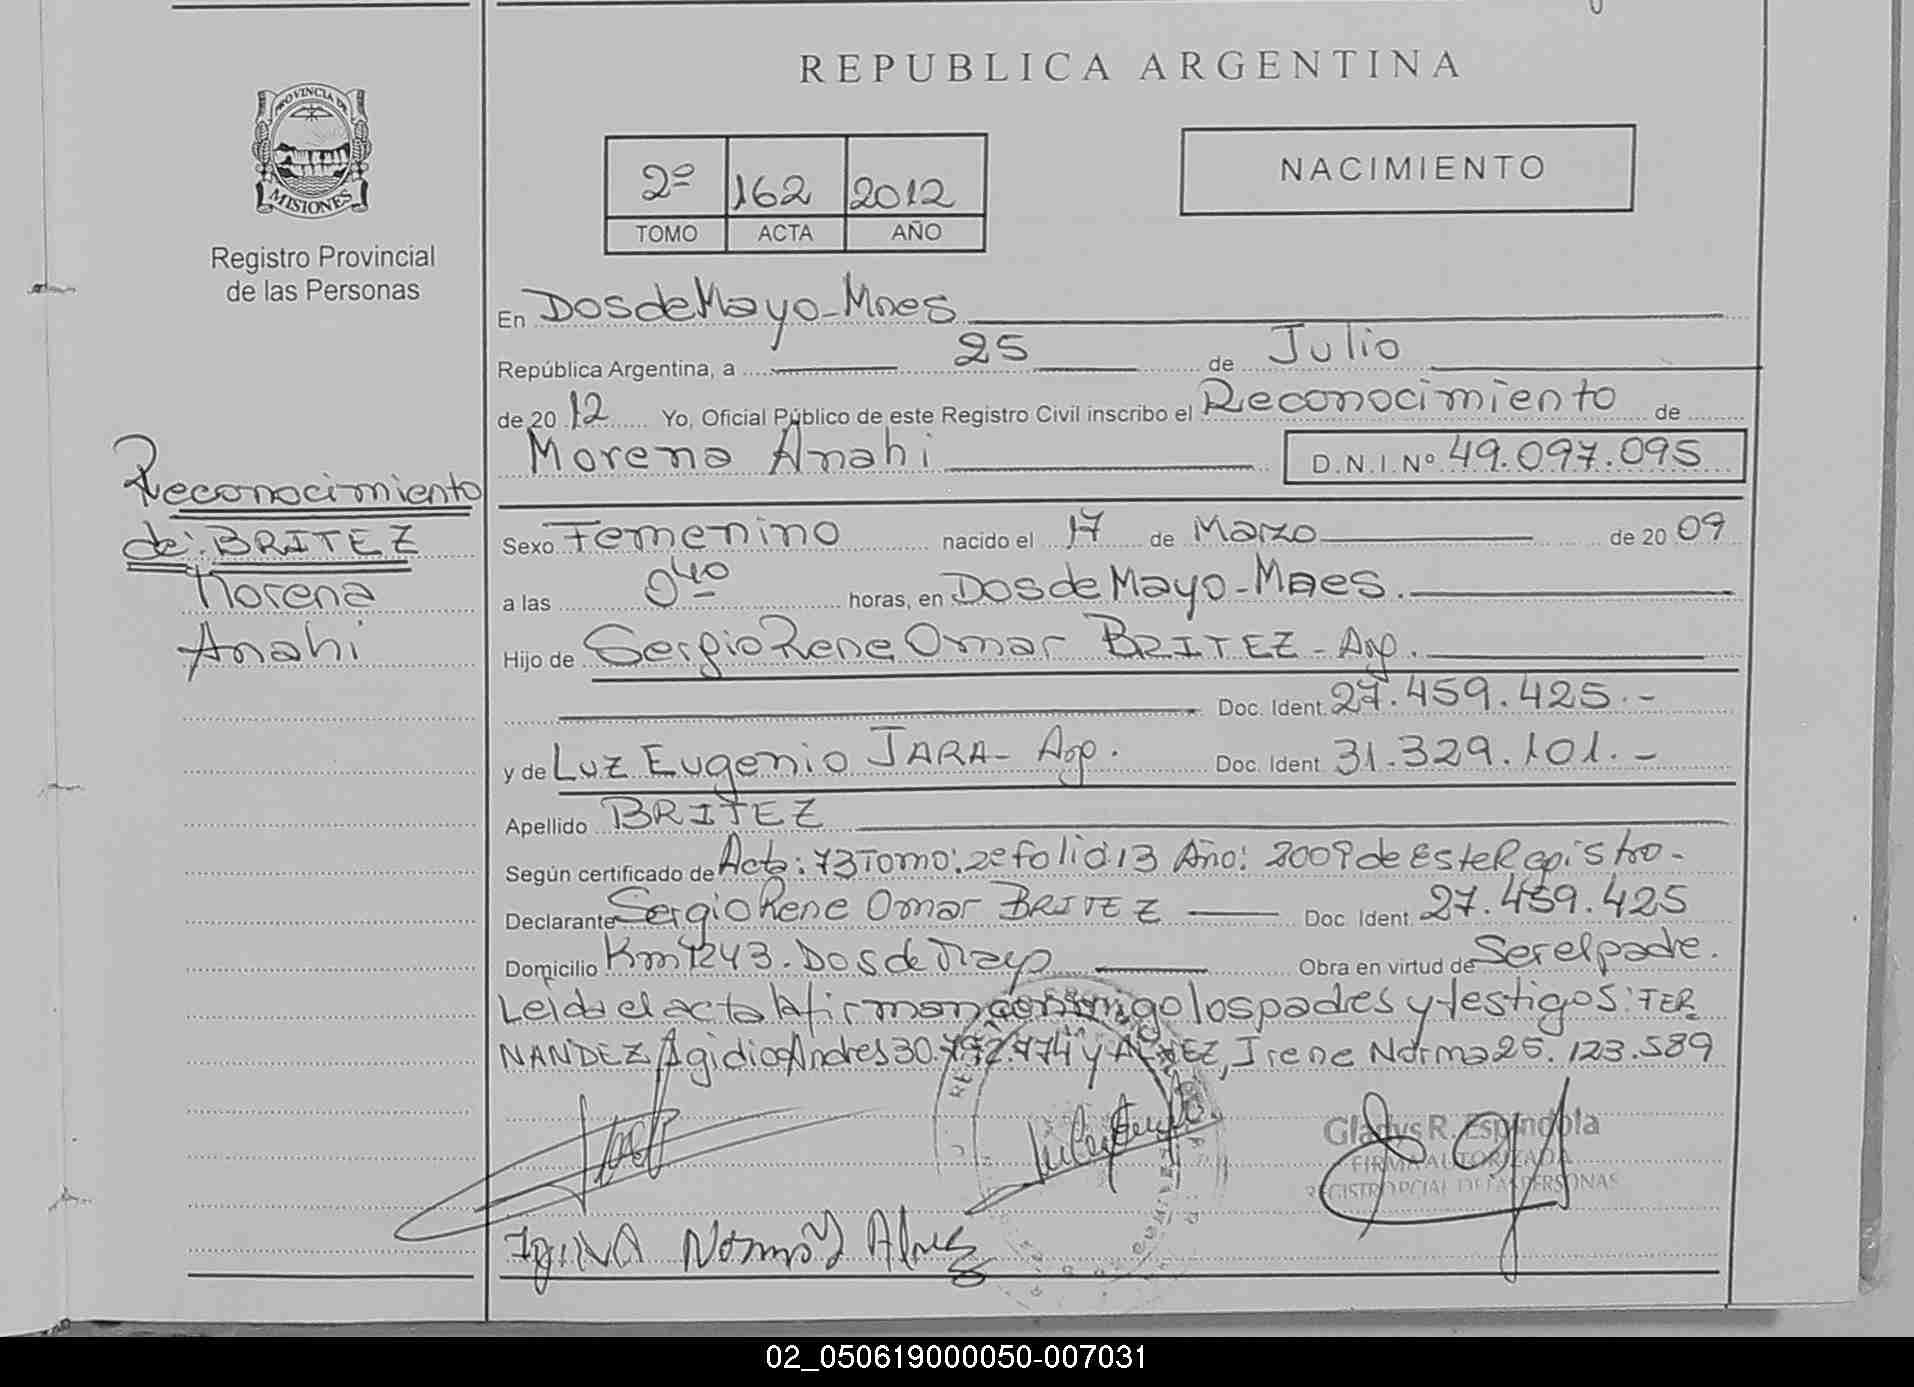 REPUBLICA ARGENTINA
PROVINCIA DE
MISIONES
Registro Provincial
de las Personas
2º 162 2012
TOMO ACTA AÑO
NACIMIENTO
En Dos de Mayo - Mnes
República Argentina, a 25 de Julio
de 2012 Yo, Oficial Público de este Registro Civil inscribo el Reconocimiento de
Morena Anahi D.N.I.Nº 49.097.095
Reconocimiento
de: BRITEZ
Morena
Anahi
Sexo Femenino nacido el 17 de Marzo de 2009
a las 0 40 horas, en Dos de Mayo - Mnes.
Hijo de Sergio Rene Omar BRITEZ - Arg.
Doc. Ident. 27.459.425.-
y de Luz Eugenio JARA - Arg. Doc. Ident. 31.329.101.-
Apellido BRITEZ
Según certificado de Acta: 73 Tomo: 2º folio 13 Año: 2009 de Este Registro -
Declarante Sergio Rene Omar BRITEZ Doc. Ident. 27.459.425
Domicilio Km 1243. Dos de Mayo Obra en virtud de Ser el padre.
Leida el acta la firman conmigo los padres y testigos: FER
NANDEZ Agidio Andres 30. y ALVEZ, Irene Norma 25.123.589
Gladys R. Espindola
FIRMA AUTORIZADA
REGISTRO PCIAL DE LAS PERSONAS
02_050619000050-007031